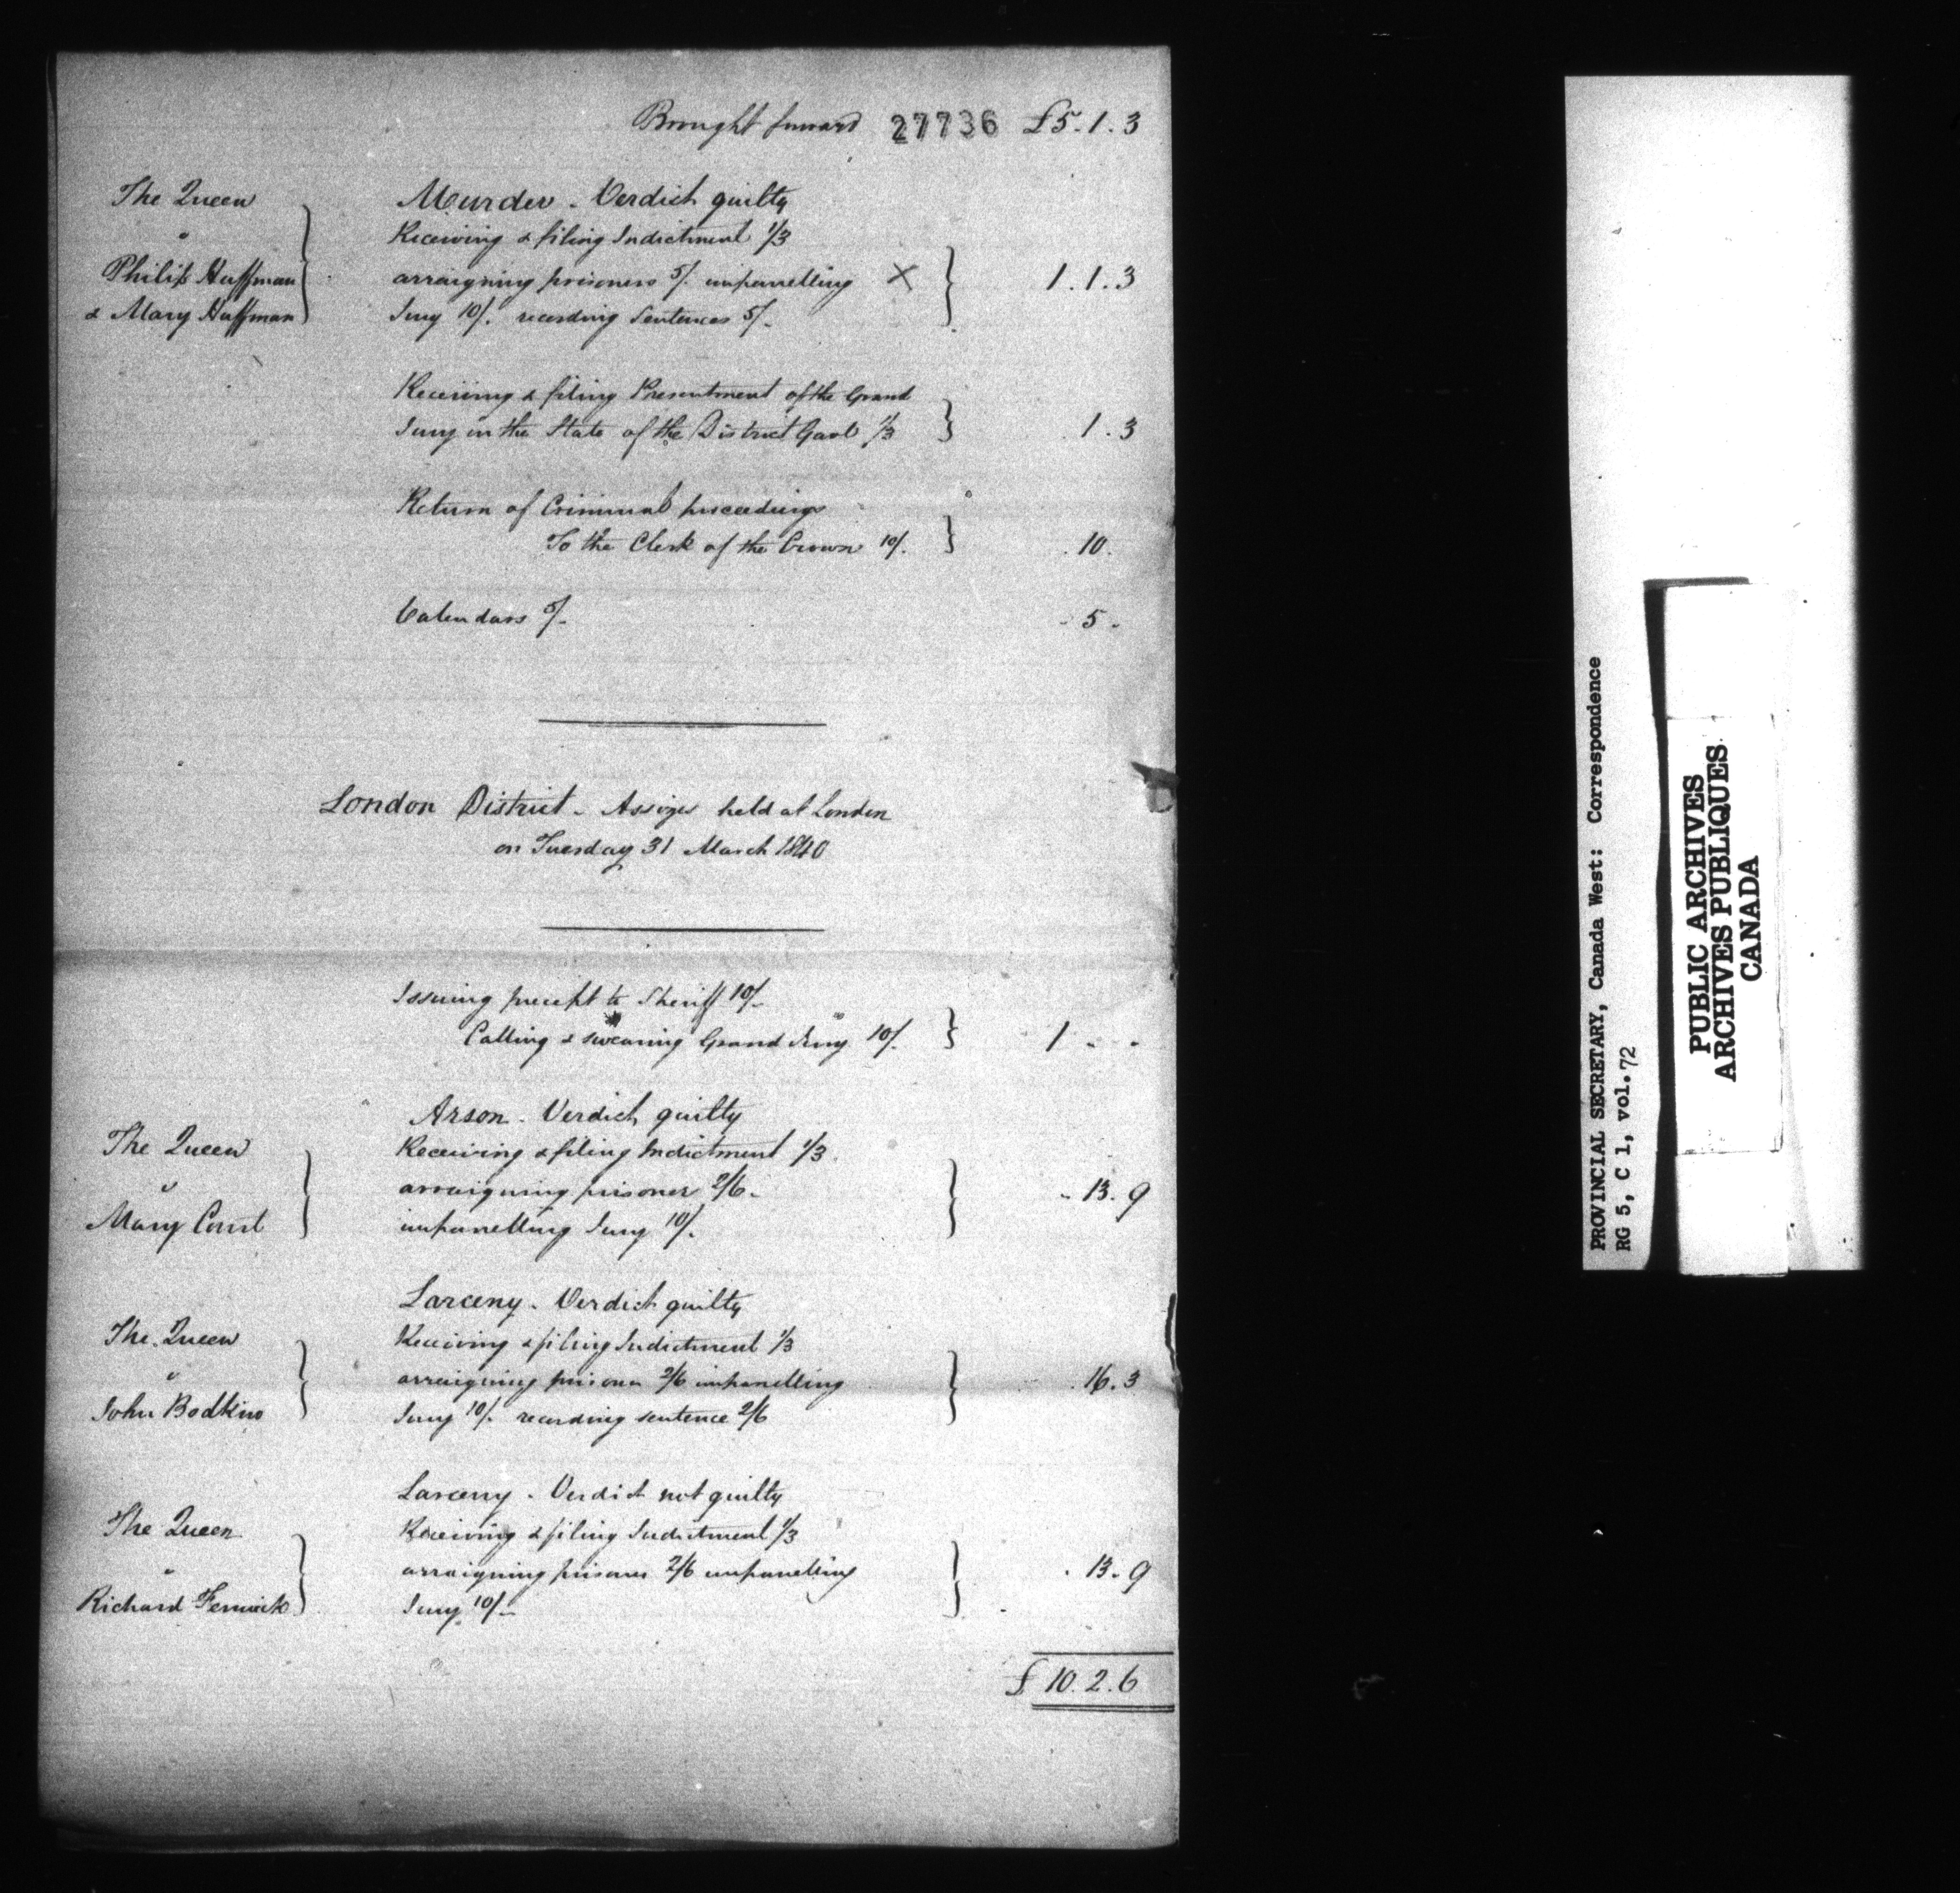 Brought forward 27736 £5.1.3
The Queen
"
Philip Huffman
& Mary Huffman
Murder - Verdict guilty
Receiving & filing Indictment 1/3
arraigning prisoners 5/. impanelling X
Jury 10/. recording Sentences 5/-
1.1.3
Receiving & filing Presentment of the Grand
Jury on the State of the District Gaol 1/3
1.3
Return of Criminal proceedings
To the Clerk of the Crown 10/.
.10.
Calendars 5/-
- 5 -
London District - Assizes held at London
on Tuesday 31 March 1840
Issuing precept to Sheriff 10/-
Calling & swearing Grand Jury 10/.
1 - -
The Queen
"
Mary Court
Arson - Verdict guilty
Receiving & filing Indictment 1/3
arraigning prisoner 2/6 -
impanelling Jury 10/.
- 13.9
The Queen
"
John Bodkins
Larceny - Verdict guilty
Receiving & filing Indictment 1/3
arraigning prisoner 2/6 impanelling
Jury 10/. recording sentence 2/6
.16.3
The Queen
"
Richard Fenwick
Larceny - Verdict not guilty
Receiving & filing Indictment 1/3
arraigning prisoner 2/6 impanelling
Jury 10/-
. 13.9
£ 10.2.6
PROVINCIAL SECRETARY, Canada West: Correspondence
RG 5, C 1, vol. 72
PUBLIC ARCHIVES
ARCHIVES PUBLIQUES
CANADA